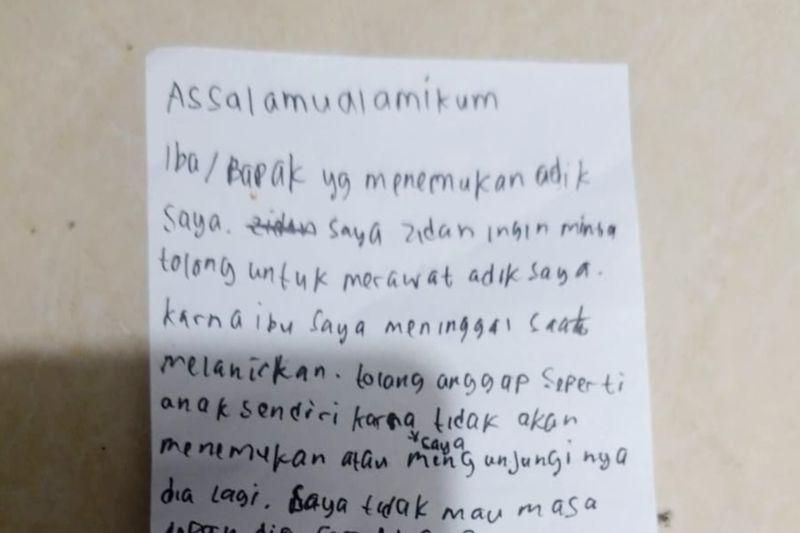 Assalamualamikum
Iba/Bapak yg menemukan adik
saya. zidan saya zidan ingin minta
tolong untuk merawat adik saya.
karna ibu saya meninggal saat
melanirkan. tolong anggap seperti
anak sendiri karna tidak akan
*saya
menemukan atau mengunjungi nya
dia lagi. saya tidak mau masa
dia